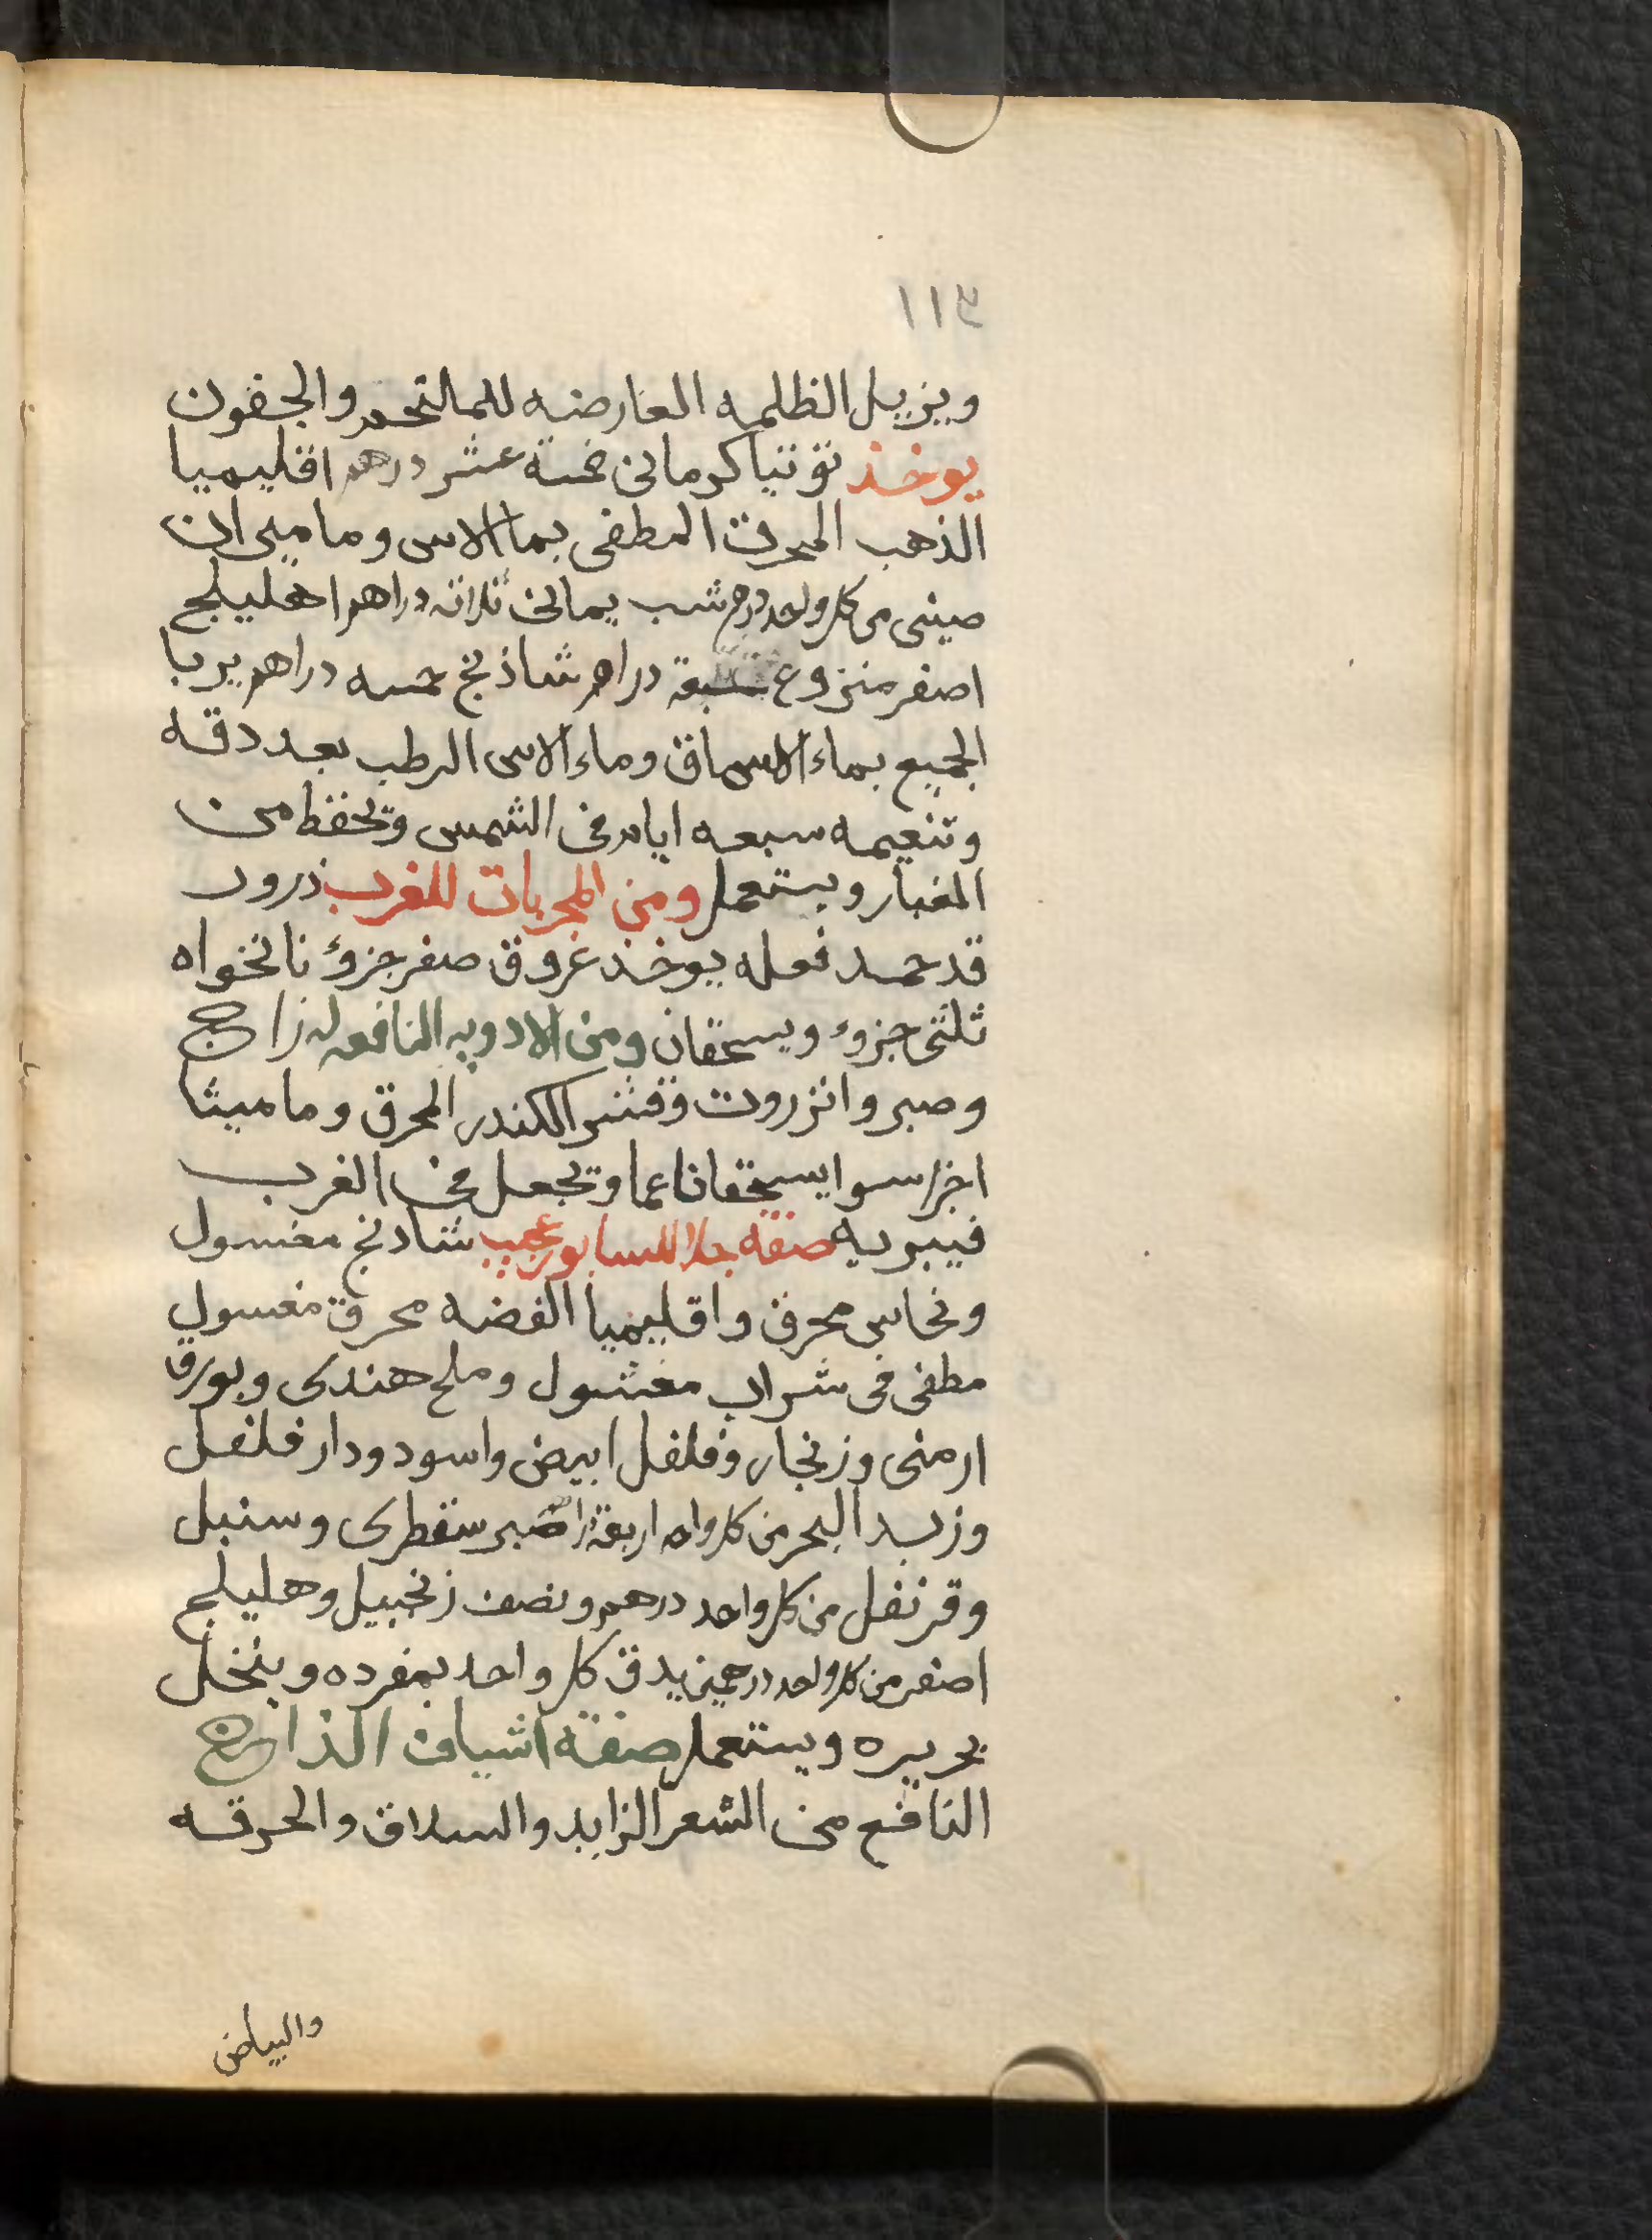 ١١٤
ويزيل الظلمه العارضه للمالتحمر والجفون
يوخذ توتيا كرمانى خمسة عشر درهم اقليميا
الذهب المحرق المطفى بماالاس وماميران
صينى من كل واحد درهم شب يمانى ثلاثه دراهم اهليلج
اصفر منزوع دراهم شاذنج خمسه دراهم يربا
الجميع بماء السماق وماء الاس الرطب بعد دقه
وتنعيمه سبعه ايام فى الشمس وتحفظ من
الغبار ويستعمل ومن المجربات للغرب ذرور
قد حمد فعله يوخذ عروق صفر جزؤ نانخواه
ثلثى جزوء ويسحقان ومن الادويه النافعه له زاج
وصبر وانزروت وقشر الكندر المحرق وماميثا
اجزا سوا يسحقان ناعما وتجعل فى الغرب
فيبريه صفة جلا للسابور عجيب شادنج مغسول
ونحاس محرق واقليميا الفضه محرق مغسول
مطفى فى شراب مغشول وملح هندى وبورق
ارمنى وزنجار وفلفل ابيض واسود ودار فلفل
وزبد البحر من كل واحد اربعة صبر سقطرى وسنبل
وقرنفل من كل واحد درهم ونصف زنجبيل وهليلج
اصفر من كل واحد درهمين يدق كل واحد بمفرده وينخل
بحريره ويستعمل صفة اشياف الذارح
النافع من الشعر الزايد والسلاق والحرقه
والبياض